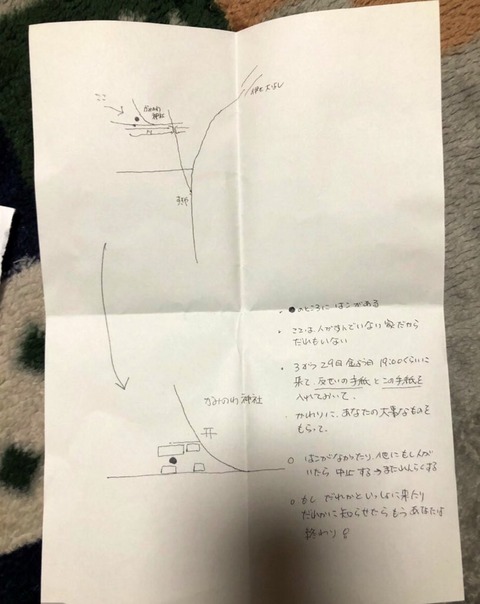 ココ
かみのわ
神社
かみのわ神社
・●のところにはこがある
・ここは人がすんでいない家だから
だれもいない
・3がつ29日金よう日 19:00くらいに
来て、反せいの手紙とこの手紙を
入れておいて。
かわりに、あなたの大事なものを
もらって。
○ はこがなかったり、他にも人が
いたら中止する→またれんらくする
○ もしだれかといっしょに来たり
だれかに知らせたらもうあなたは
終わり